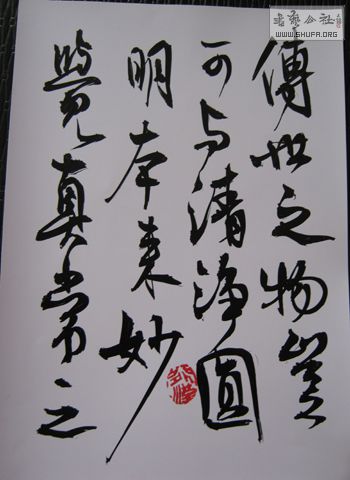 傳世之物豈
可与清淨圓
明本来妙
覺真常之
书艺公社
WWW.SHUFA.ORG